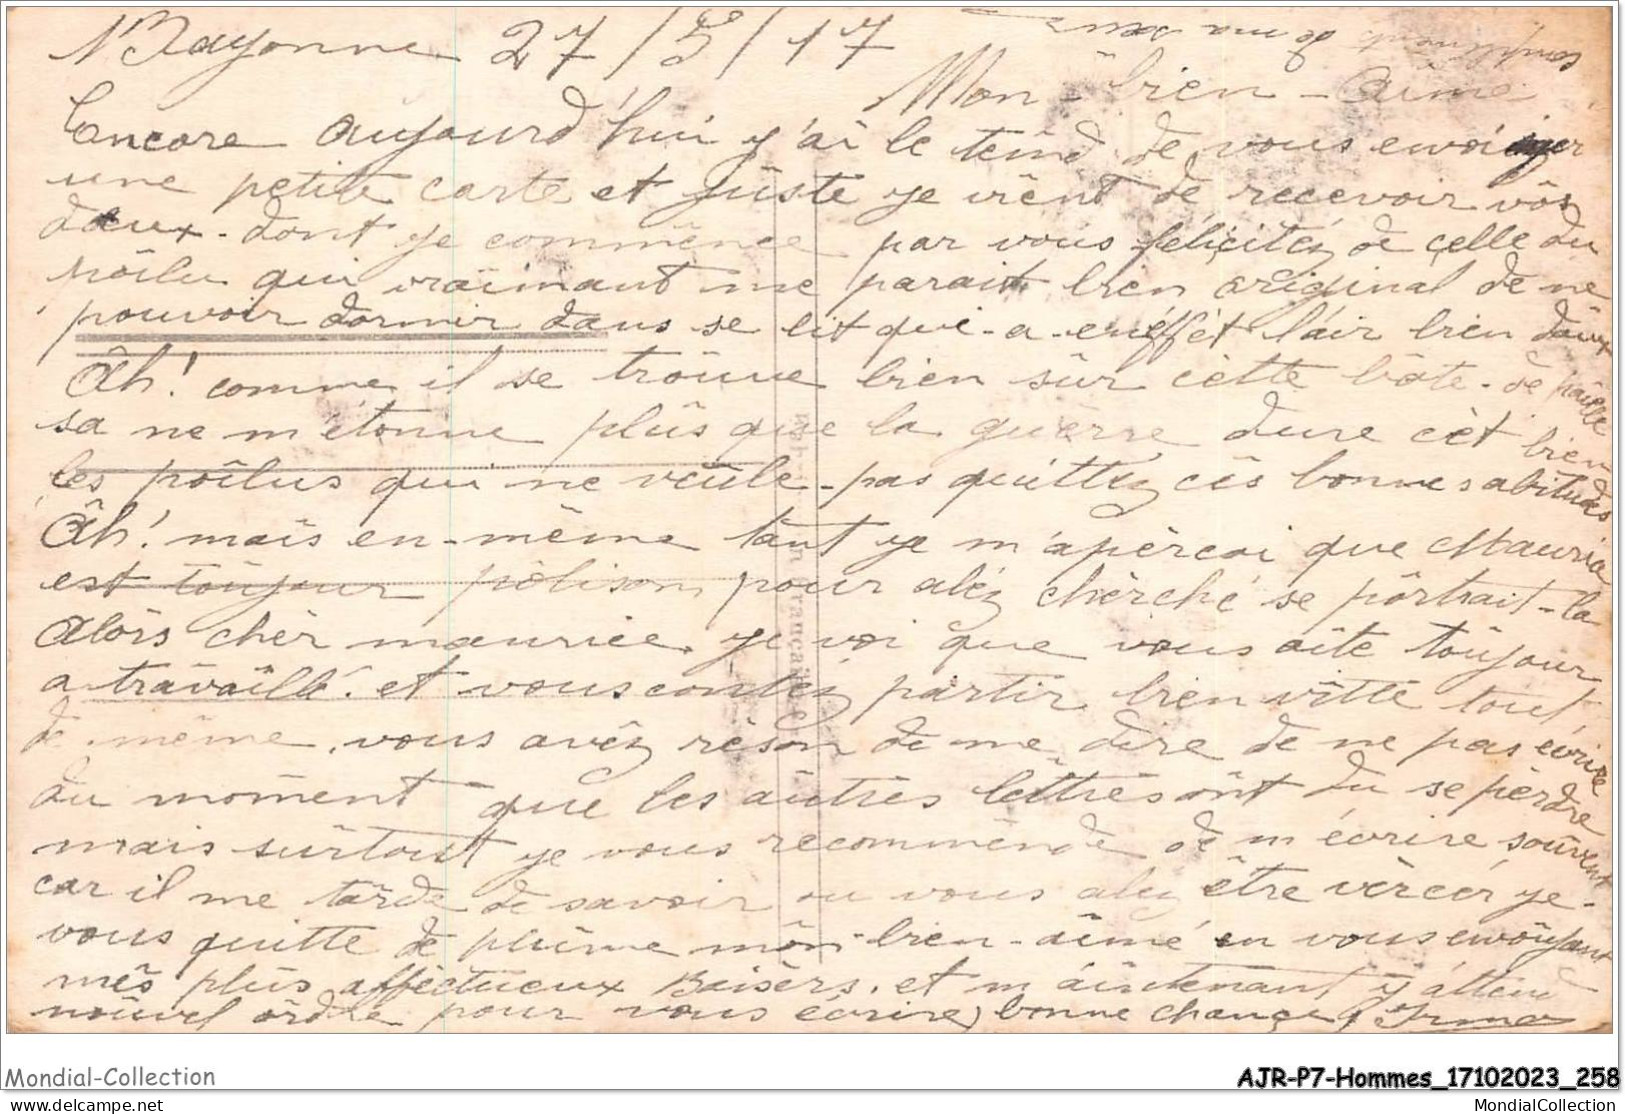 Bayonne 27/5/17
compliments de ma sœur
Mon-bien-aimé
Encore aujourd'hui y'ai le tend de vous envoiyer
une petite carte et jûste ye vient de recevoir vôs
deux-dont ye commênce par vous félicitéz de celle du
pôilu qui vraimant me parait bien original de ne
pouvoir dormir dans se lit qui-a-en éffèt l'air bien doux
Âh! comme il se trôuve bien sûr cètte bôte-de pâille
sa ne m'étonne plûs que la guèrre dure cèt bien
les pôilus qui ne veûle-pas quittéz cès bonnes abitudes
Âh! mais en-même tant ye m'apèrcoi que Maurice
est toûjour pôlison pour aléz chèrché se pôrtrait-la
Alôrs chèr maurice. ye voi que vous aite toûjour
a travâillé. et vous contéz partir bien vîtte tout
de même, vous avéz rèson de me dire de ne pas écrire
du môment que lès aûtrès lèttrès ônt du se pèrdre
mais sûrtout ye vous recommènde de m'écrire soûvent
car il me tarde de savoir ou vous aléz être vèrcér ye-
vous quitte de plûme môn-bien-aimé en vous envôiyant
mès plûs afféctueux Baisèrs. et m'aintenant y'attend
nôuvel ôrdre pour vous écrire, bonne chance, Irma
Mondial-Collection
AJR-P7-Hommes_17102023_258
delcampe.net
MondialCollection